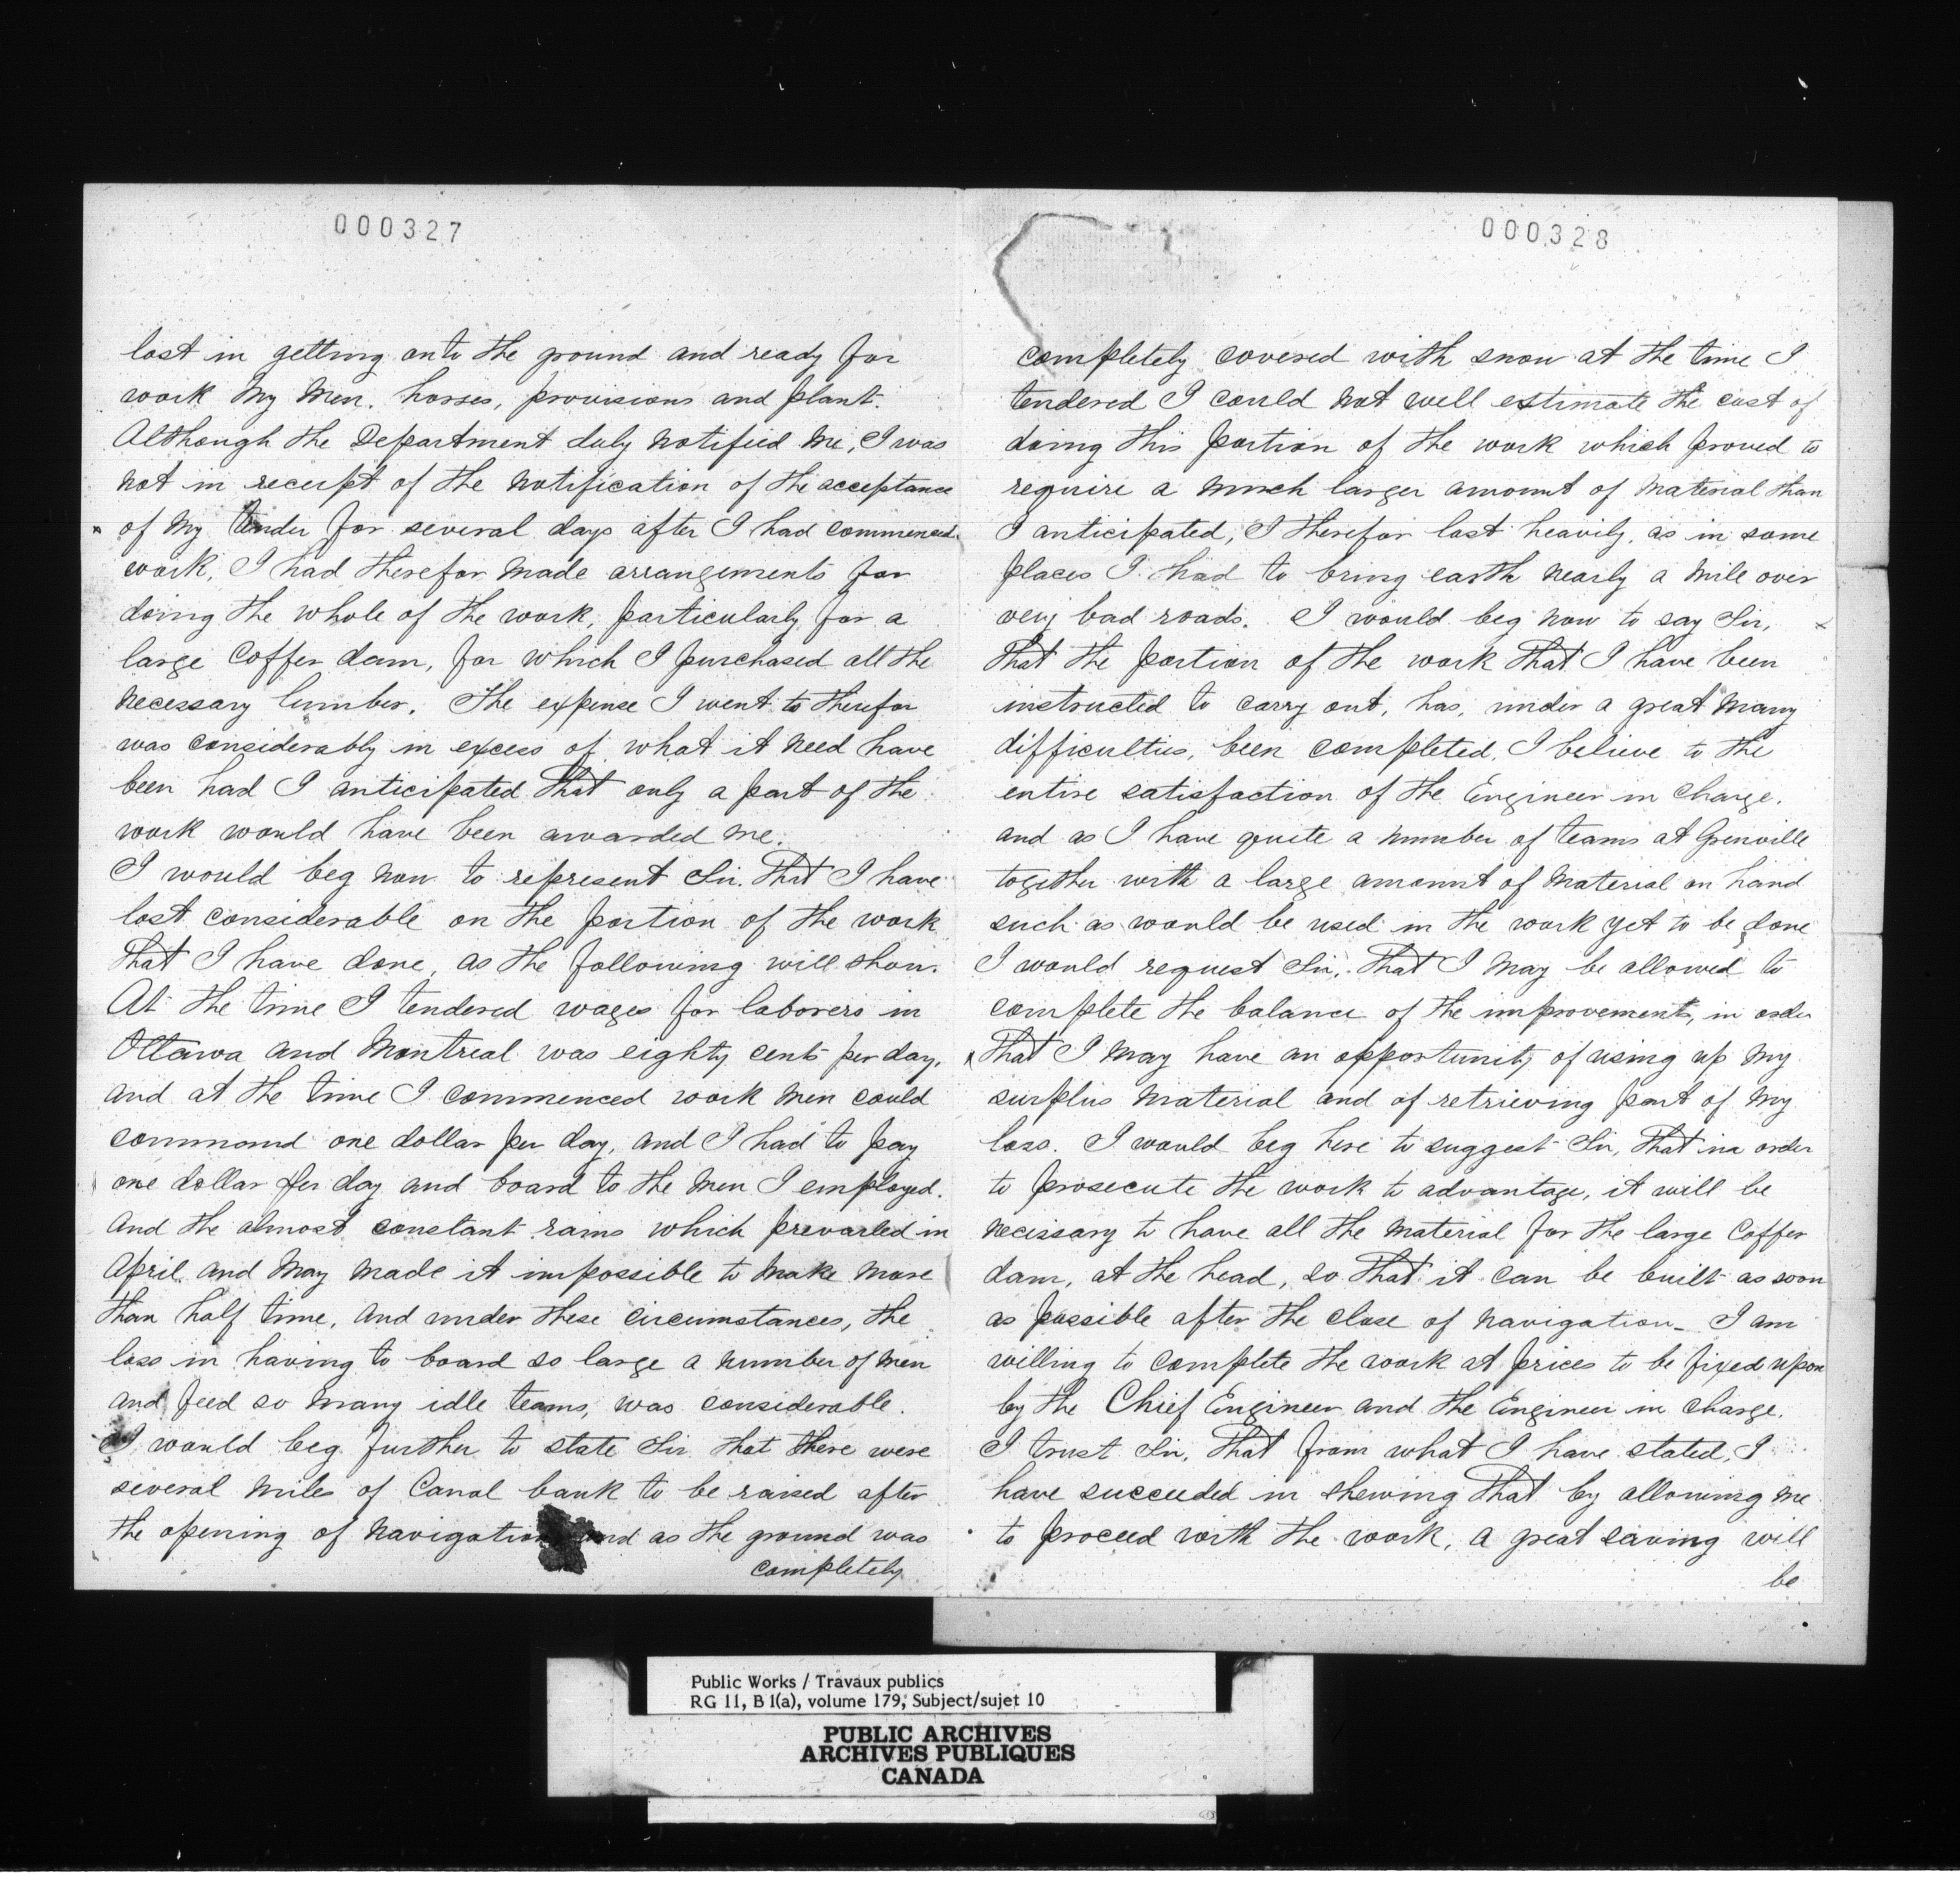 000327
lost in getting onto the ground and ready for
work my men. horses, provisions and plant.
Although the Department duly notified me, I was
not in receipt of the notification of the acceptance
of my tender for several days after I had commenced
work, I had therefor made arrangements for
doing the whole of the work, particularly for a
large Coffer dam, for which I purchased all the
necessary lumber. The expense I went to therefor
was considerably in excess of what it need have
been had I anticipated that only a part of the
work would have been awarded me.
I would beg now to represent Sir. That I have
lost considerable on the portion of the work
that I have done, as the following will show.
At the time I tendered wages for laborers in
Ottawa and Montreal was eighty cents per day,
and at the time I commenced work men could
command one dollar per day, and I had to pay
one dollar per day and board to the men I employed.
And the almost constant rains which prevailed in
April and May made it impossible to make more
than half time, and under these circumstances, the
loss in having to board so large a number of men
and feed so many idle teams, was considerable.
I would beg further to state Sir that there were
several miles of Canal bank to be raised after
the opening of navigation and as the ground was
completely
000328
completely covered with snow at the time I
tendered I could not well estimate the cost of
doing this portion of the work which proved to
require a much larger amount of material than
I anticipated, I therefor lost heavily, as in some
places I had to bring earth nearly a mile over
very bad roads. I would beg now to say Sir,
that the portion of the work that I have been
instructed to carry out, has, under a great many
difficulties, been completed, I believe to the
entire satisfaction of the Engineer in charge.
and as I have quite a number of teams at Grenville
together with a large amount of material on hand
such as would be used in the work yet to be done
I would request Sir, that I may be allowed to
complete the balance of the improvements, in order
that I may have an opportunity of using up my
surplus material and of retrieving part of my
loss. I would beg here to suggest Sir, that in order
to prosecute the work to advantage, it will be
necessary to have all the material for the large Coffer
dam, at the head, so that it can be built as soon
as possible after the close of navigation_ I am
willing to complete the work at prices to be fixed upon
by the Chief Engineer and the Engineer in charge.
I trust Sir, that from what I have stated, I
have succeeded in shewing that by allowing me
to proceed with the work, a great saving will
be
Public Works / Travaux publics
RG 11, B 1(a), volume 179, Subject/sujet 10
PUBLIC ARCHIVES
ARCHIVES PUBLIQUES
CANADA